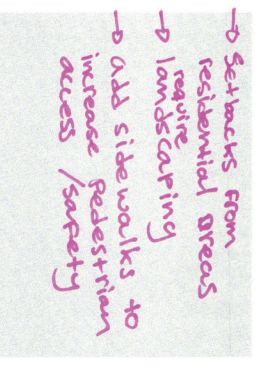 → Setbacks from
residential areas
→ require
landscaping
→ add sidewalks to
increase pedestrian
access / safety